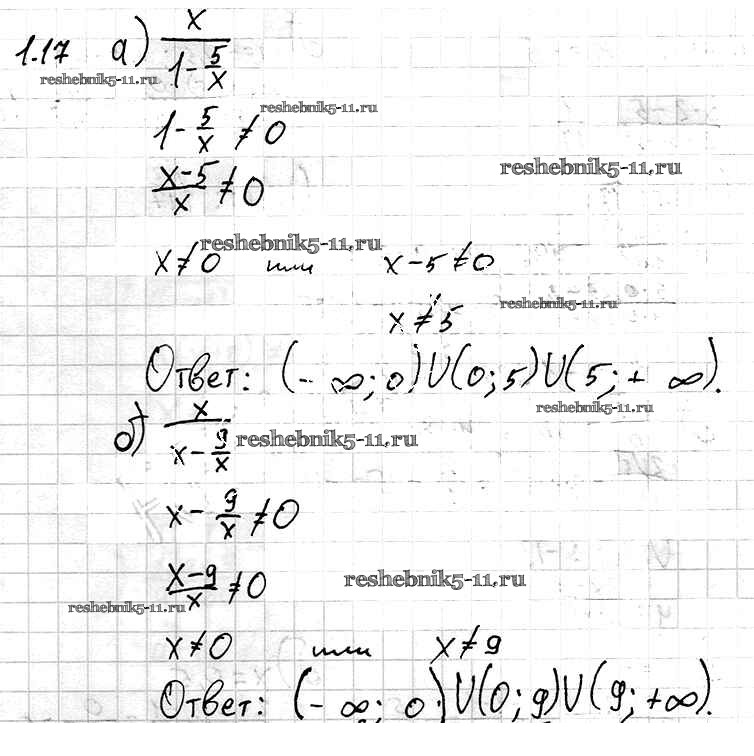 1.17 а) x/(1 - 5/x)
reshebnik5-11.ru
reshebnik5-11.ru
1 - 5/x ≠ 0
reshebnik5-11.ru
(x-5)/x ≠ 0
reshebnik5-11.ru
x ≠ 0 или x - 5 ≠ 0
reshebnik5-11.ru
x ≠ 5
Ответ: (-∞; 0) U (0; 5) U (5; + ∞).
reshebnik5-11.ru
б) x/(x - 9/x)
reshebnik5-11.ru
x - 9/x ≠ 0
(x-9)/x ≠ 0
reshebnik5-11.ru
reshebnik5-11.ru
x ≠ 0 или x ≠ 9
Ответ: (-∞; 0) U (0; 9) U (9; +∞).